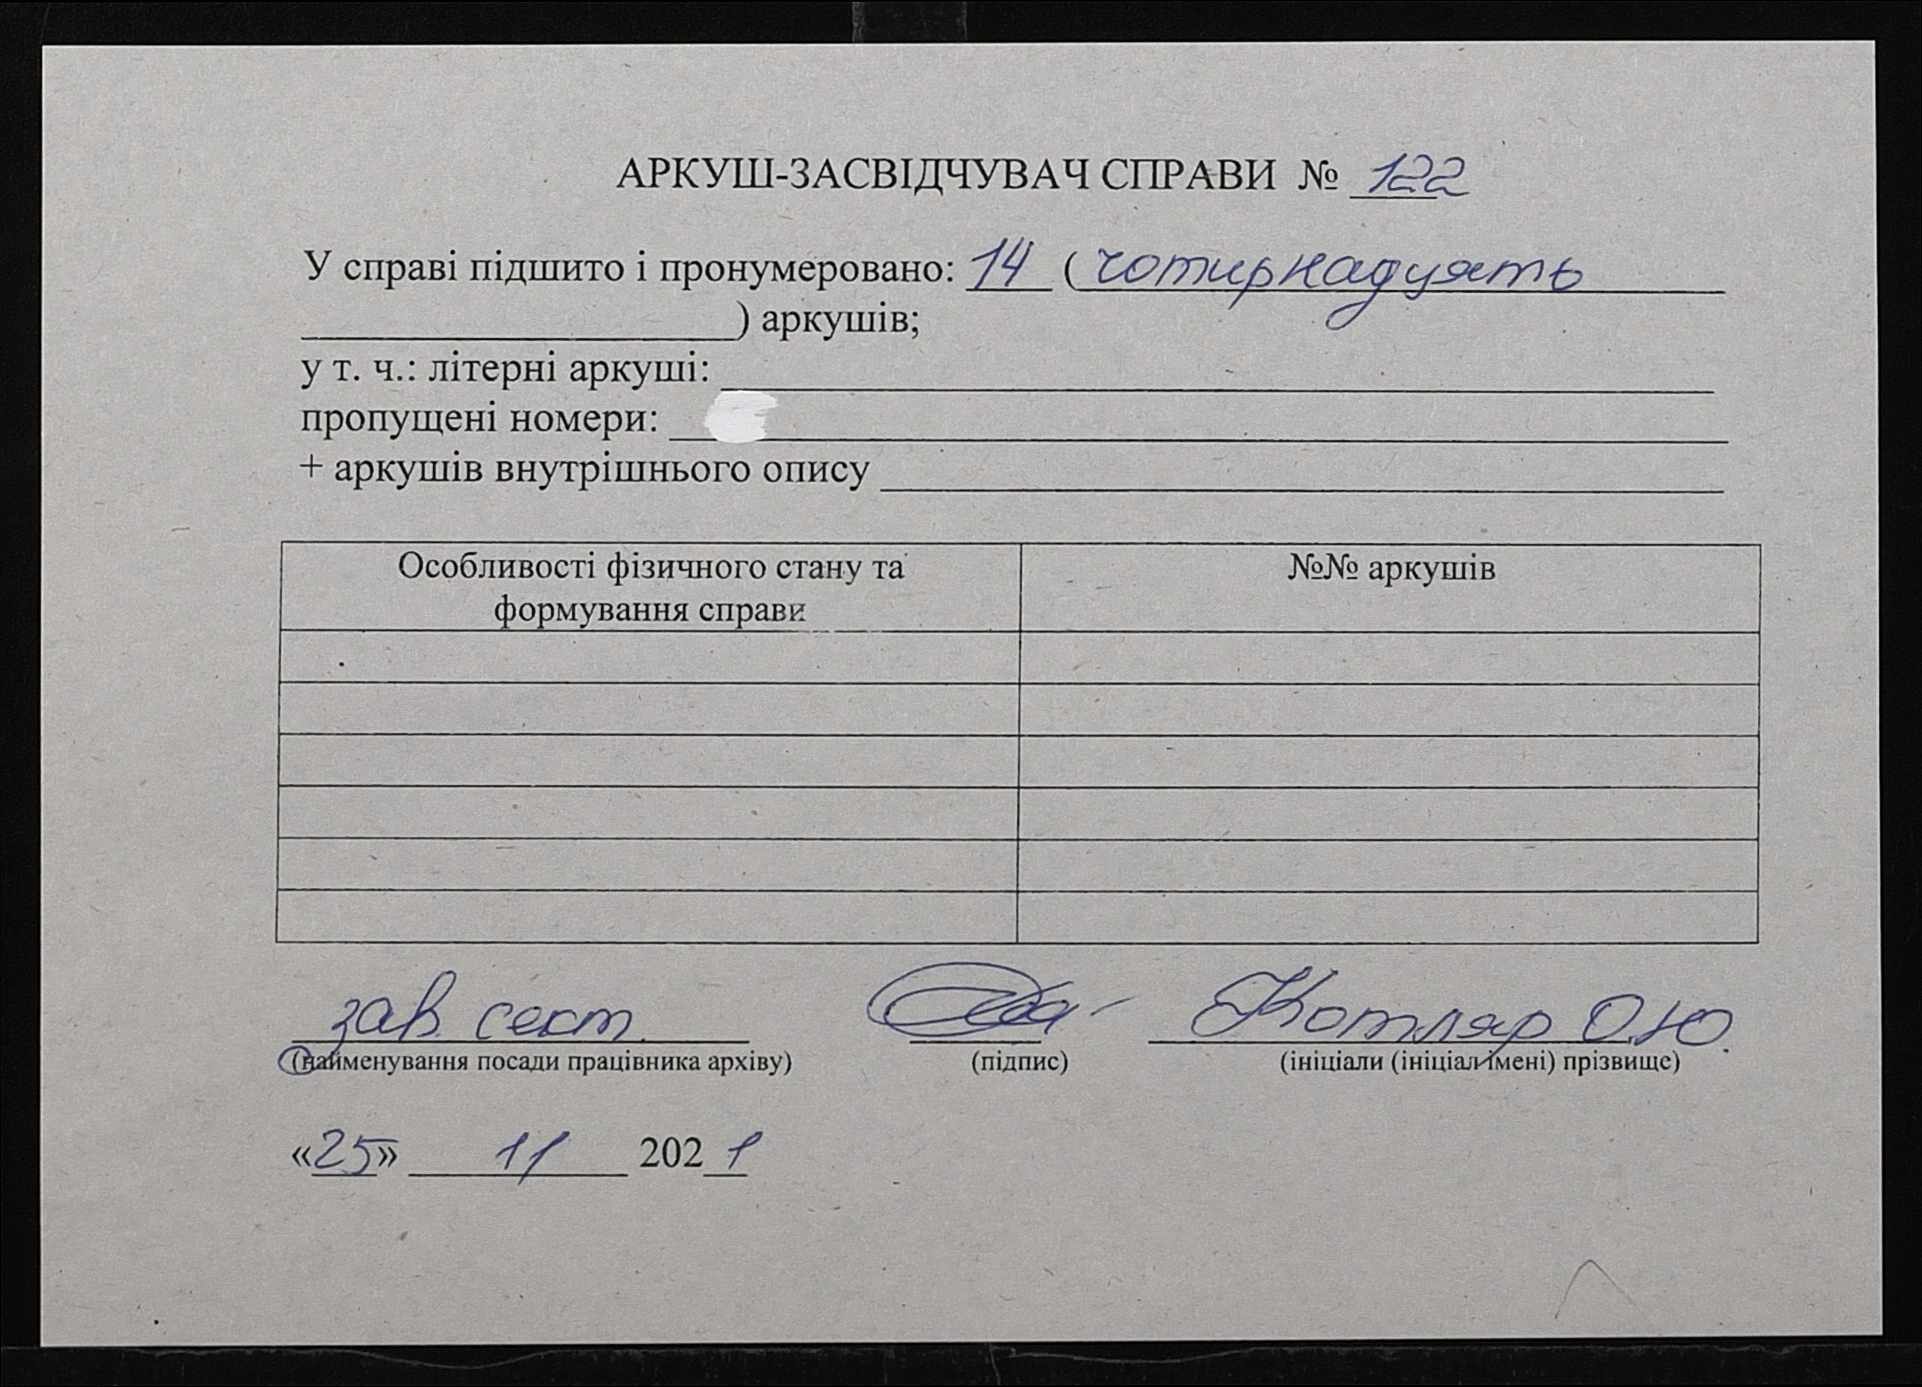 АРКУШ-ЗАСВІДЧУВАЧ СПРАВИ № 122
У справі підшито і пронумеровано: 14 ( чотирнадцять
) аркушів;
у т. ч.: літерні аркуші:
пропущені номери:
+ аркушів внутрішнього опису
Особливості фізичного стану та №№ аркушів
формування справи
зав. сект. Котляр О.Ю.
(найменування посади працівника архіву) (підпис) (ініціали (ініціал імені) прізвище)
«25» 11 2021